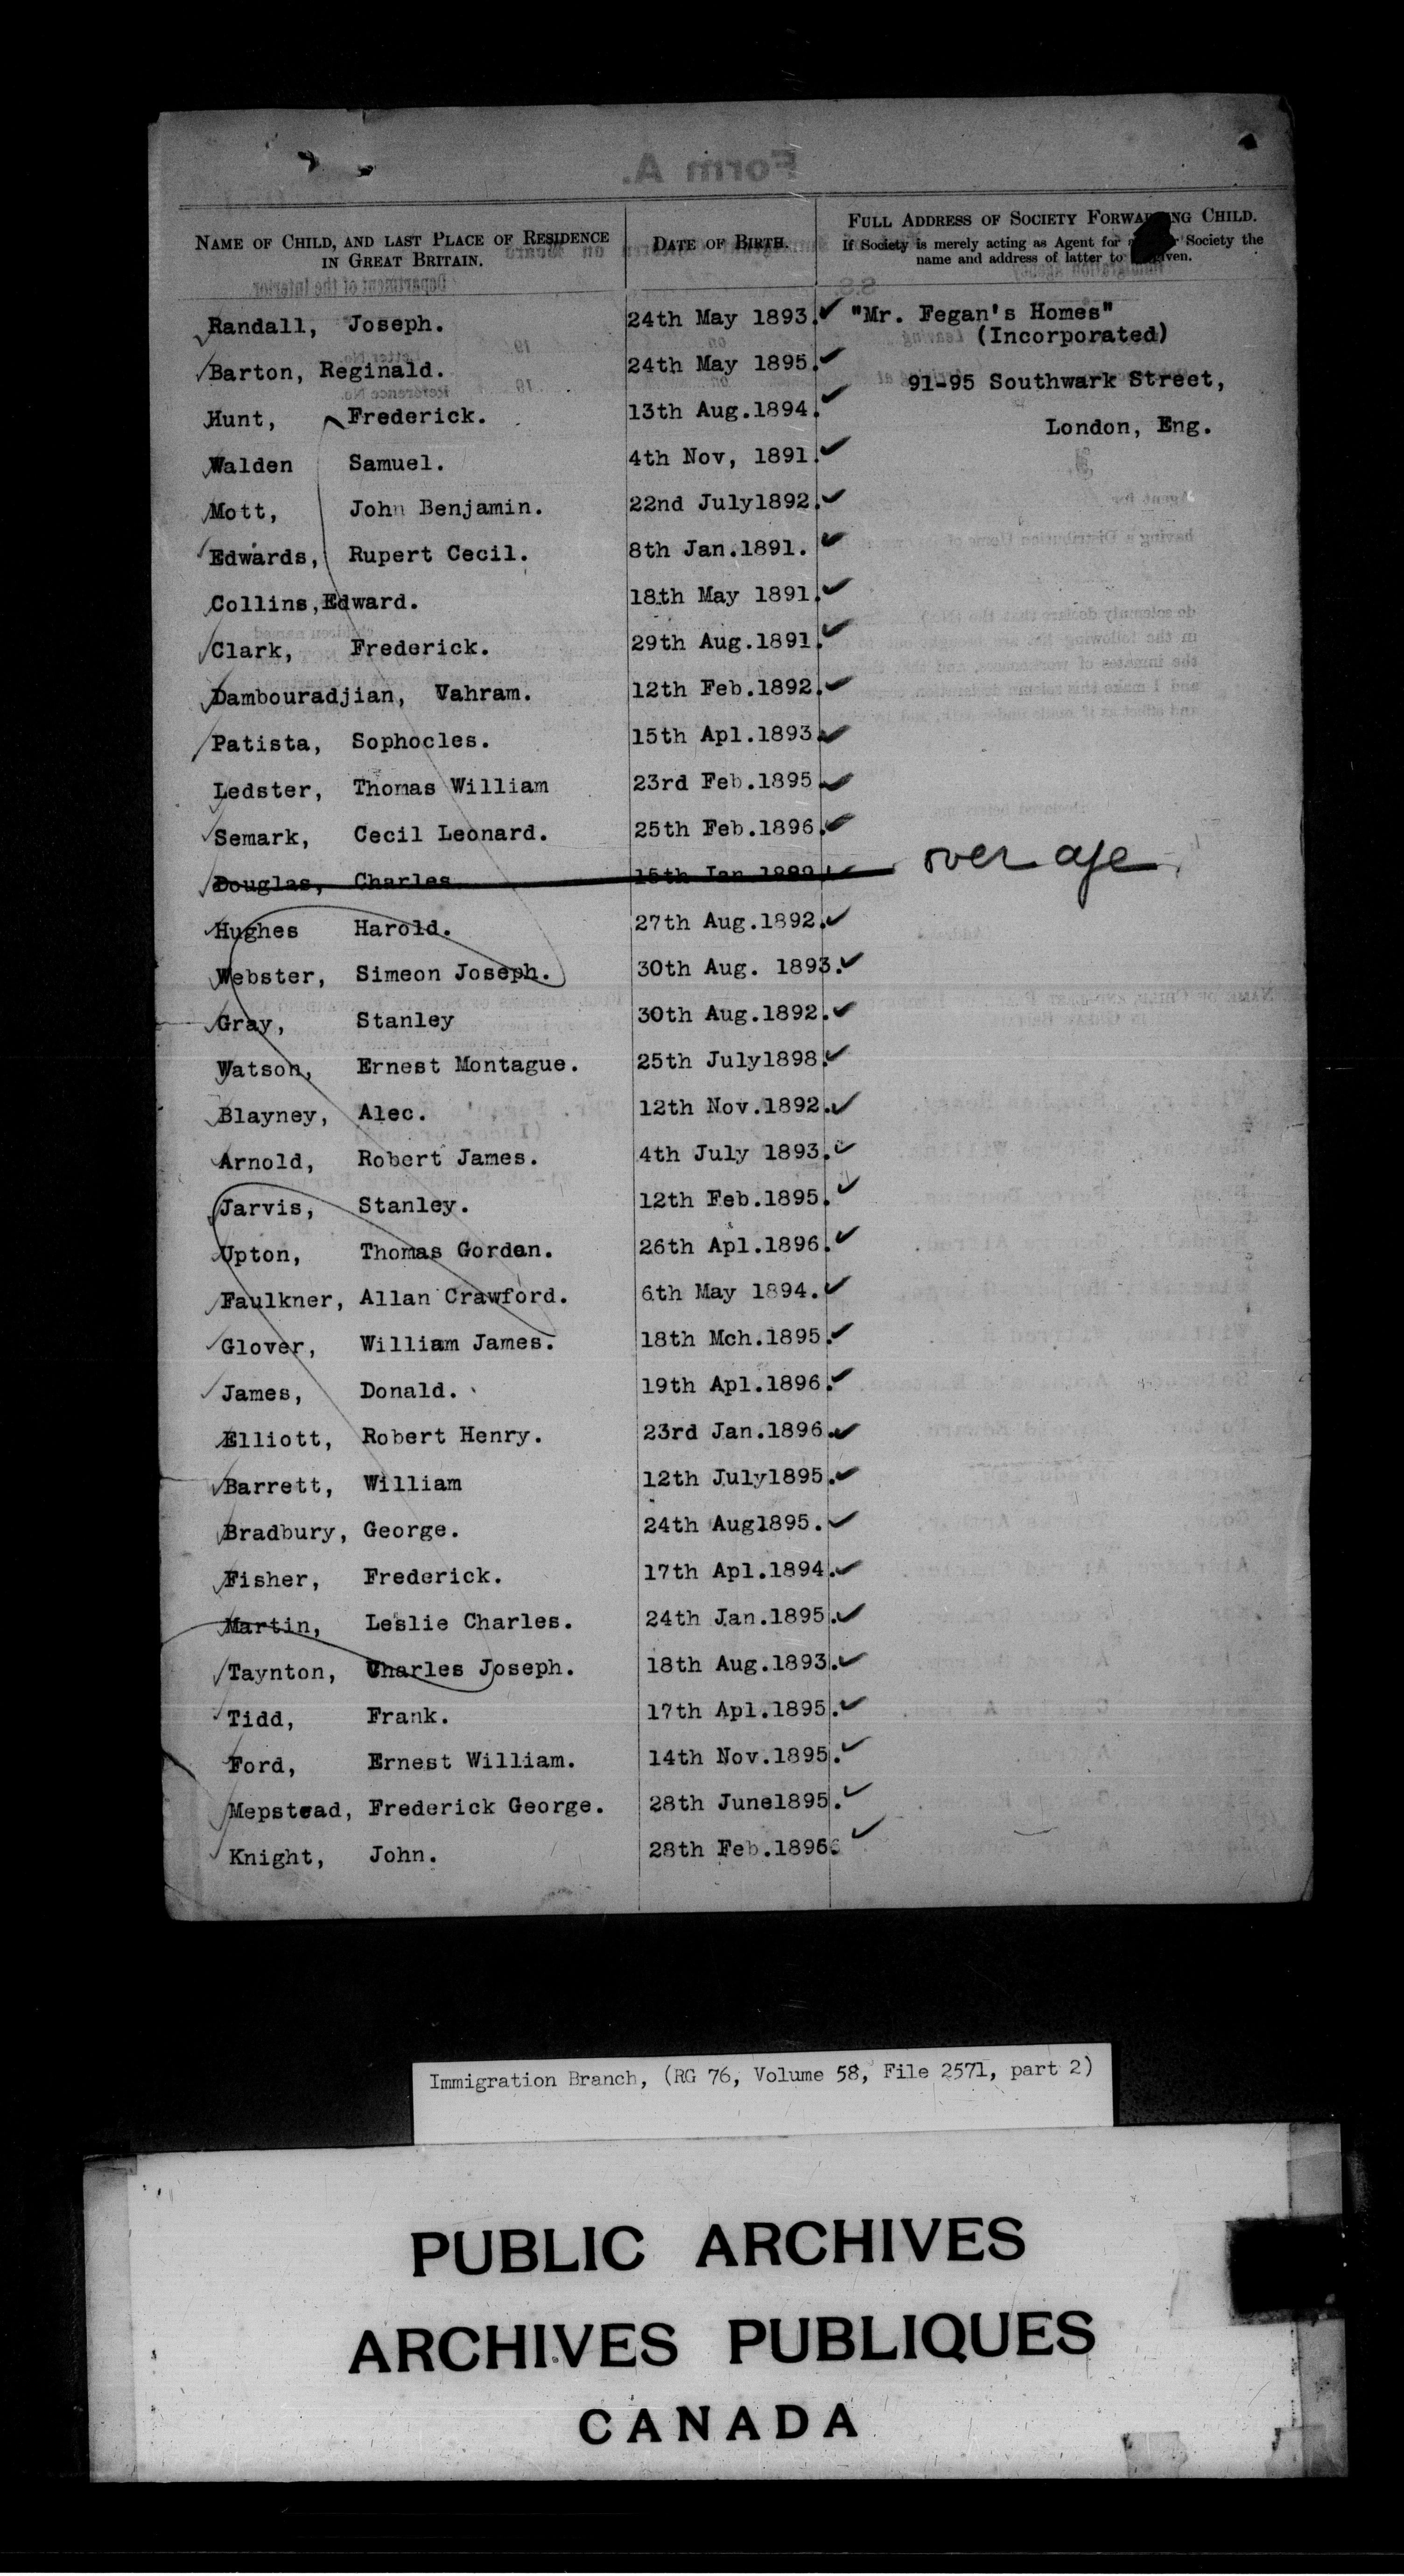 Form A.
NAME OF CHILD, AND LAST PLACE OF RESIDENCE IN GREAT BRITAIN.
DATE OF BIRTH.
FULL ADDRESS OF SOCIETY FORWARDING CHILD.
If Society is merely acting as Agent for Society the
name and address of latter to given.
Randall, Joseph. 24th May 1893. "Mr. Fegan's Homes"
(Incorporated)
Barton, Reginald. 24th May 1895.
91-95 Southwark Street,
Hunt, Frederick. 13th Aug.1894.
London, Eng.
Walden Samuel. 4th Nov, 1891.
Mott, John Benjamin. 22nd July1892.
Edwards, Rupert Cecil. 8th Jan.1891.
Collins,Edward. 18th May 1891.
Clark, Frederick. 29th Aug.1891.
Dambouradjian, Vahram. 12th Feb.1892.
Patista, Sophocles. 15th Apl.1893.
Ledster, Thomas William 23rd Feb.1895
Semark, Cecil Leonard. 25th Feb.1896.
Douglas, Charles 15th Jan over age
Hughes Harold. 27th Aug.1892.
Webster, Simeon Joseph. 30th Aug. 1893.
Gray, Stanley 30th Aug.1892.
Watson, Ernest Montague. 25th July1898.
Blayney, Alec. 12th Nov.1892.
Arnold, Robert James. 4th July 1893.
Jarvis, Stanley. 12th Feb.1895.
Upton, Thomas Gordan. 26th Apl.1896.
Faulkner, Allan Crawford. 6th May 1894.
Glover, William James. 18th Mch.1895.
James, Donald. 19th Apl.1896.
Elliott, Robert Henry. 23rd Jan.1896.
Barrett, William 12th July1895.
Bradbury, George. 24th Aug1895.
Fisher, Frederick. 17th Apl.1894.
Martin, Leslie Charles. 24th Jan.1895.
Taynton, Charles Joseph. 18th Aug.1893.
Tidd, Frank. 17th Apl.1895.
Ford, Ernest William. 14th Nov.1895.
Mepstead, Frederick George. 28th June1895.
Knight, John. 28th Feb.1896.
Immigration Branch, (RG 76, Volume 58, File 2571, part 2)
PUBLIC ARCHIVES
ARCHIVES PUBLIQUES
CANADA